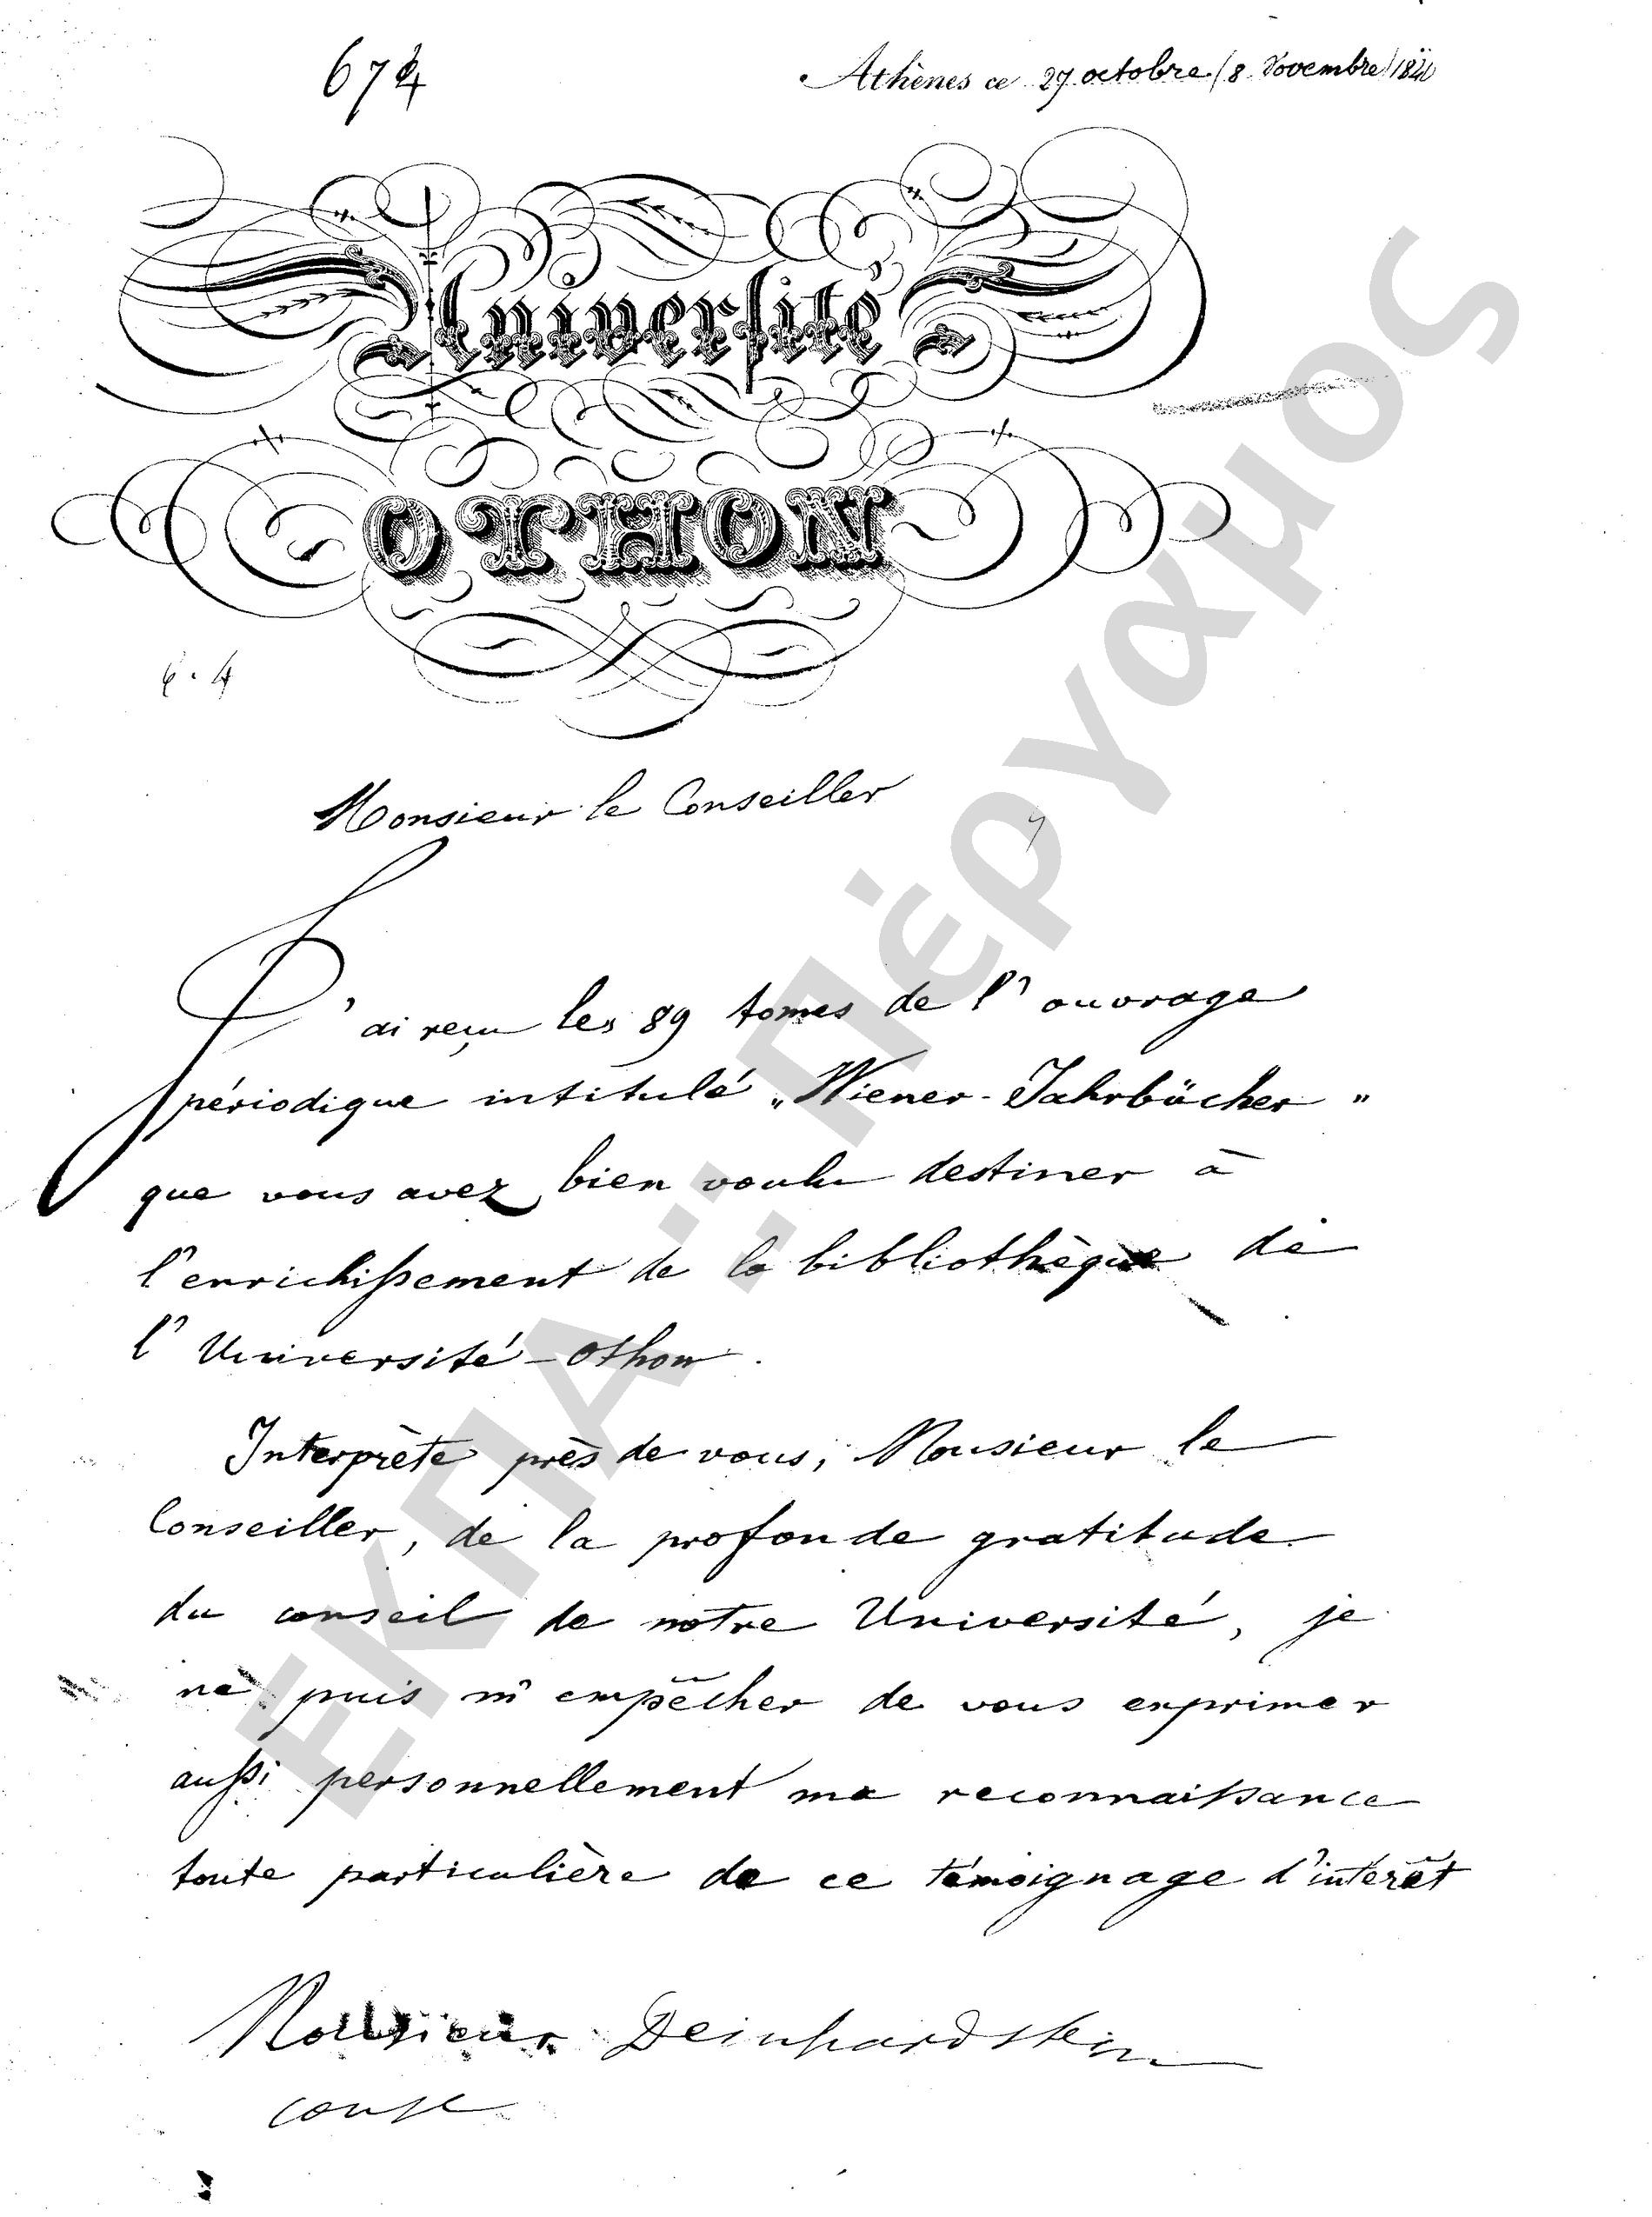 674
Athènes ce 27 octobre /8 Novembre/ 1840
Université
OTHON
6.4
Monsieur le Conseiller
J'ai reçu les 89 tomes de l'ouvrage
périodique intitulé „Wiener-Jahrbücher"
que vous avez bien voulu destiner à
l'enrichissement de la bibliothèque de
l'Université-Othon.
Interprète près de vous, Monsieur le
Conseiller, de la profonde gratitude
du conseil de notre Université, je
ne puis m'empêcher de vous exprimer
aussi personnellement ma reconnaissance
toute particulière de ce témoignage d'intérêt
Monsieur Deinhardstein
ΕΚΠΑ :: Πέργαμος